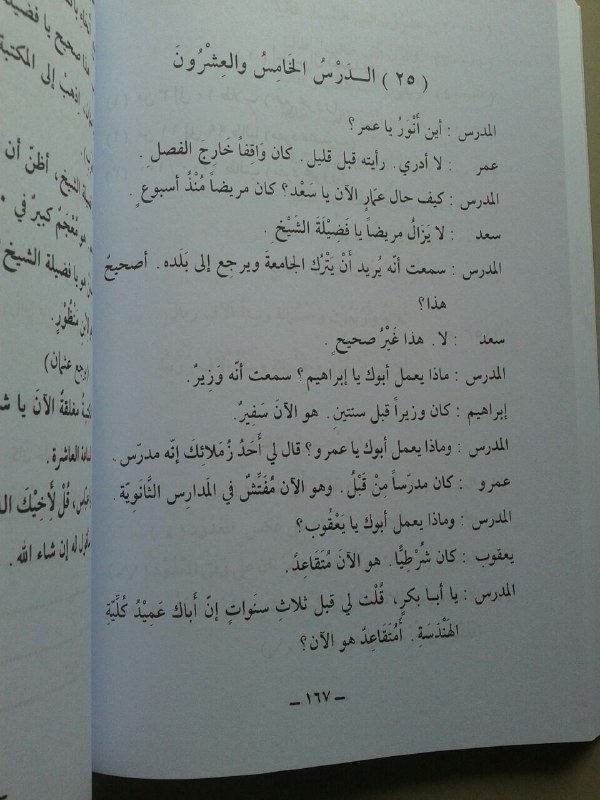 (٢٥) الـدَرْسُ الخَامِسُ والعِشْرُونَ
المدرس : أين أَنْوَرُ يا عمر؟
عمر : لا أدري. رأيته قبل قليل. كان وَاقفاً خَارِجَ الفَصل.
المدرس : كيف حال عمّارٍ الآن يا سَعْد؟ كان مريضاً مُنْذُ أسبوعٍ.
سعد : لا يَزَالُ مريضاً يا فَضِيْلَةَ الشَّيْخِ.
المدرس : سمعت أنّه يُريد أَنْ يَتْرُك الجامعةَ ويرجع إلى بَلَده. أصحيحٌ
هذا؟
سعد : لا. هذا غَيْرُ صحيحٍ.
المدرس : ماذا يعمل أبوك يا إبراهيم؟ سمعت أنه وَزِيرٌ.
إبراهيم : كان وزيراً قبل سنتين. هو الآنَ سَفِيرٌ.
المدرس : وماذا يعمل أبوك يا عمرو؟ قال لي أَحَدُ زُمَلائِكَ إنّه مدرّس.
عمرو : كان مدرّساً مِنْ قَبْلُ. وهو الآن مُفَتِّشٌ في المَدارِس الثَّانوِيّة.
المدرس : وماذا يعمل أبوك يا يَعْقُوب؟
يعقوب : كان شُرْطِيًّا. هو الآنَ مُتَقَاعِدٌ.
المدرس : يا أبـا بكرٍ، قُلْت لي قبل ثلاثِ سنَواتٍ إنّ أباك عَمِيْدُ كُلِّيَّةِ
الهَنْدَسَةِ. أَمُتَقَاعِدٌ هو الآن؟
– ١٦٧ –
صحيح يا فضيلة
اذهبْ إلى المكتبة
الشيخ، أظنّ أن
هو مُعْجَمٌ كبيرٌ في
يا فضيلة الشيخ
لابن مَنْظُورٍ.
(يرجع عثمان)
مغلقةٌ الآنَ يا
العاشرة.
قُلْ لأَخِيْكَ
له إن شاء الله.